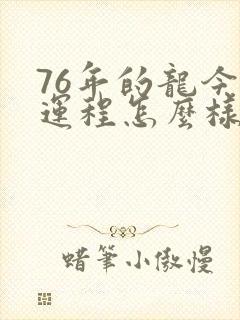 76年的龍今
運程怎麼樣
蜡筆小傲慢